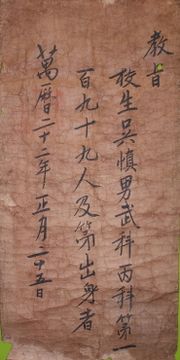 教旨
校生吳愼男武科丙科第一
百九十九人及第出身者
萬曆二十二年正月二十五日